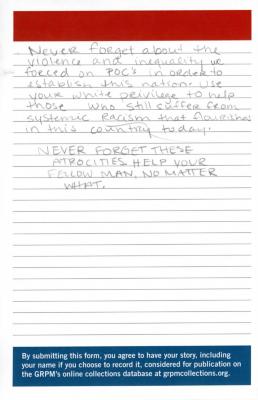 Never forget about the
violence and inequality we
forced on POC's in order to
establish this nation. Use
your white privilege to help
those who still suffer from
systemic racism that flourishes
in this country today.
NEVER FORGET THESE
ATROCITIES HELP YOUR
FELLOW MAN, NO MATTER
WHAT.
By submitting this form, you agree to have your story, including
your name if you choose to record it, considered for publication on
the GRPM's online collections database at grpmcollections.org.